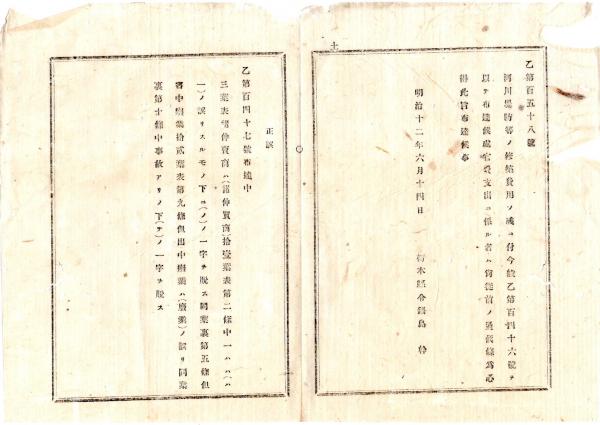 土
乙第百五十八號
河川臨時等ノ修繕費用ノ議ニ付今般乙第百四十六號ヲ
以テ布達候處官費支出ニ係ル者ハ尚從前ノ通候條爲心
得此旨布達候事
明治十二年六月十四日 栃木縣令鍋島 幹
正誤
乙第百四十七號布達中
三葉表 仲買商ハ(諸仲買商)拾壹葉表第二條中一ハハ(ハ
一)ノ誤リスルモノ下ニ(ノ)ノ一字ヲ脱ス同葉裏第五條但
書中 業拾貳葉表第九條但出中 業ハ(廢業)ノ誤リ同葉
裏第十條中事故アリノ下(テ)ノ一字ヲ脱ス